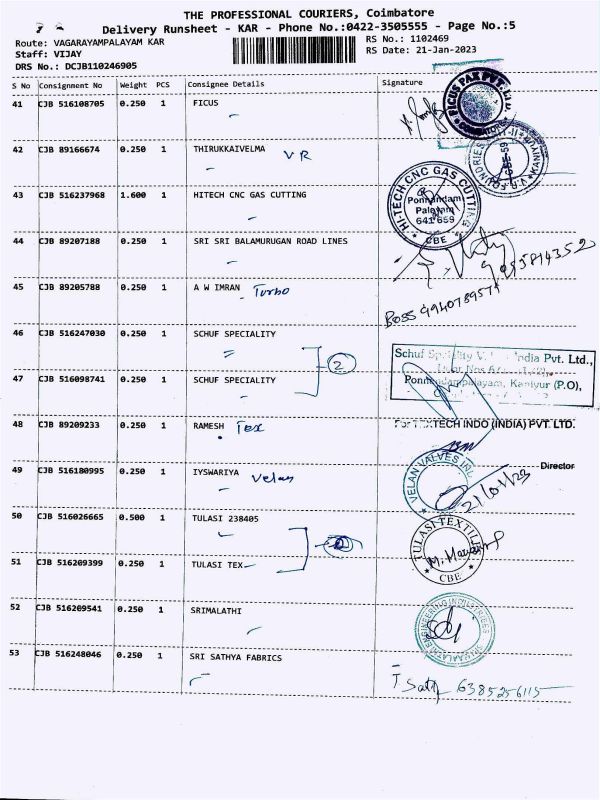 THE PROFESSIONAL COURIERS, Coimbatore
Delivery Runsheet - KAR - Phone No.:0422-3505555 - Page No.:5
Route: VAGARAYAMPALAYAM KAR
RS No.: 1102469
Staff: VIJAY
RS Date: 21-Jan-2023
DRS No.: DCJB110246905
S No Consignment No Weight PCS Consignee Details Signature
41 CJB 516108705 0.250 1 FICUS
42 CJB 89166674 0.250 1 THIRUKKAIVELMA VR
43 CJB 516237968 1.600 1 HITECH CNC GAS CUTTING
HITECH CNC GAS CUTTING
Ponnandam
Palayam
641 659
CBE
44 CJB 89207188 0.250 1 SRI SRI BALAMURUGAN ROAD LINES
45 CJB 89205788 0.250 1 A W IMRAN Turbo
46 CJB 516247030 0.250 1 SCHUF SPECIALITY
2
Schuf India Pvt. Ltd.,
47 CJB 516098741 0.250 1 SCHUF SPECIALITY
Kaniyur (P.O),
48 CJB 89209233 0.250 1 RAMESH Tex
TECH INDO (INDIA) PVT. LTD.
Director
49 CJB 516180995 0.250 1 IYSWARIYA Velan
VELAN VALVES
21/01/23
50 CJB 516026665 0.500 1 TULASI 238405
TULASI TEXTILE
CBE
51 CJB 516209399 0.250 1 TULASI TEX
52 CJB 516209541 0.250 1 SRIMALATHI
ENGINEERING INDUSTRIES
53 CJB 516248046 0.250 1 SRI SATHYA FABRICS
6385256115